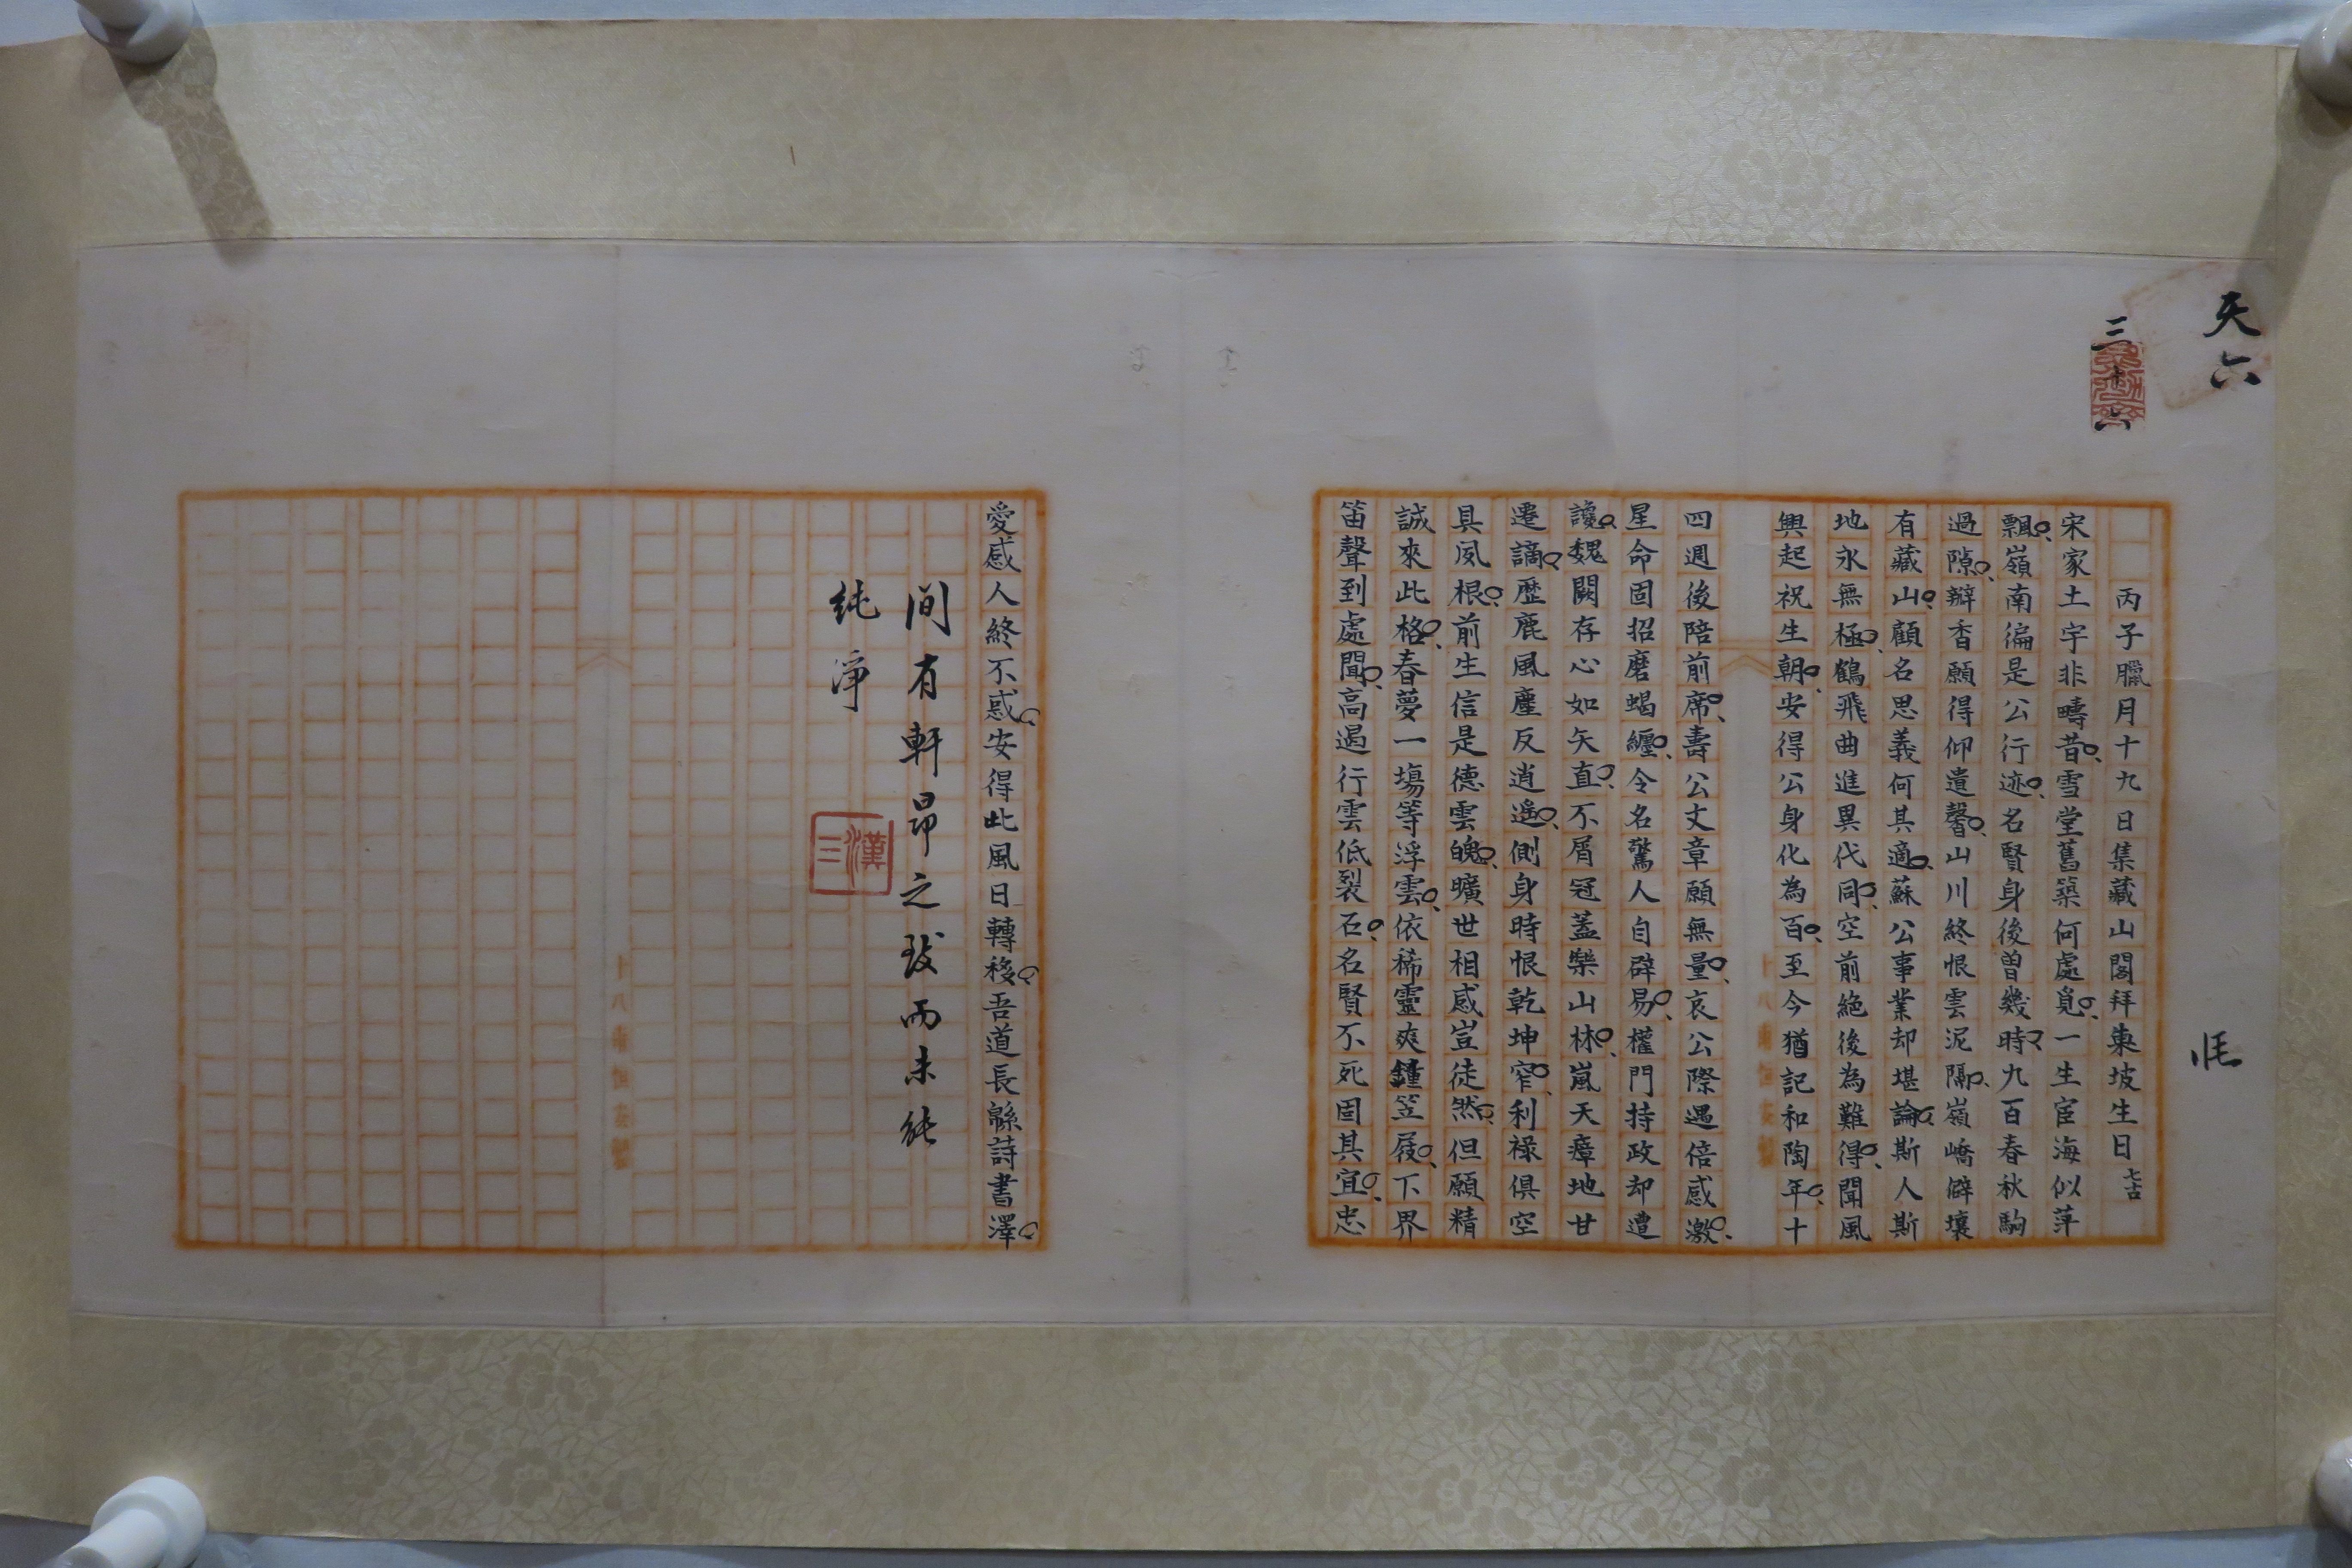 天六
三十六
丙子臘月十九日集藏山閣拜東坡生日七古
宋家土宇非疇昔雪堂舊築何處覓一生宦海似萍
飄嶺南徧是公行迹名賢身後曾幾時九百春秋駒
過隙瓣香願得仰遺馨山川終恨雲泥隔嶺嶠僻壤
有藏山顧名思義何其適蘇公事業却堪論斯人斯
地永無極鶴飛曲進異代同空前絕後為難得聞風
興起祝生朝安得公身化為百至今猶記和陶年十
四週後陪前席壽公文章願無量哀公際遇倍感激
星命固招磨蝎纏令名驚人自辟易權門持政却遭
讒魏闕存心如矢直不屑冠蓋樂山林嵐天瘴地甘
遷謫歷鹿風塵反逍遙側身時恨乾坤窄利祿俱空
具夙根前生信是德雲魄曠世相感豈徒然但願精
誠來此格春夢一塲等浮雲依稀靈爽鍾笠屐下界
笛聲到處聞高遏行雲低裂石名賢不死固其宜忠
愛感人終不惑安得此風日轉移吾道長緜詩書澤
間有軒昂之致而未能
純淨
漢三